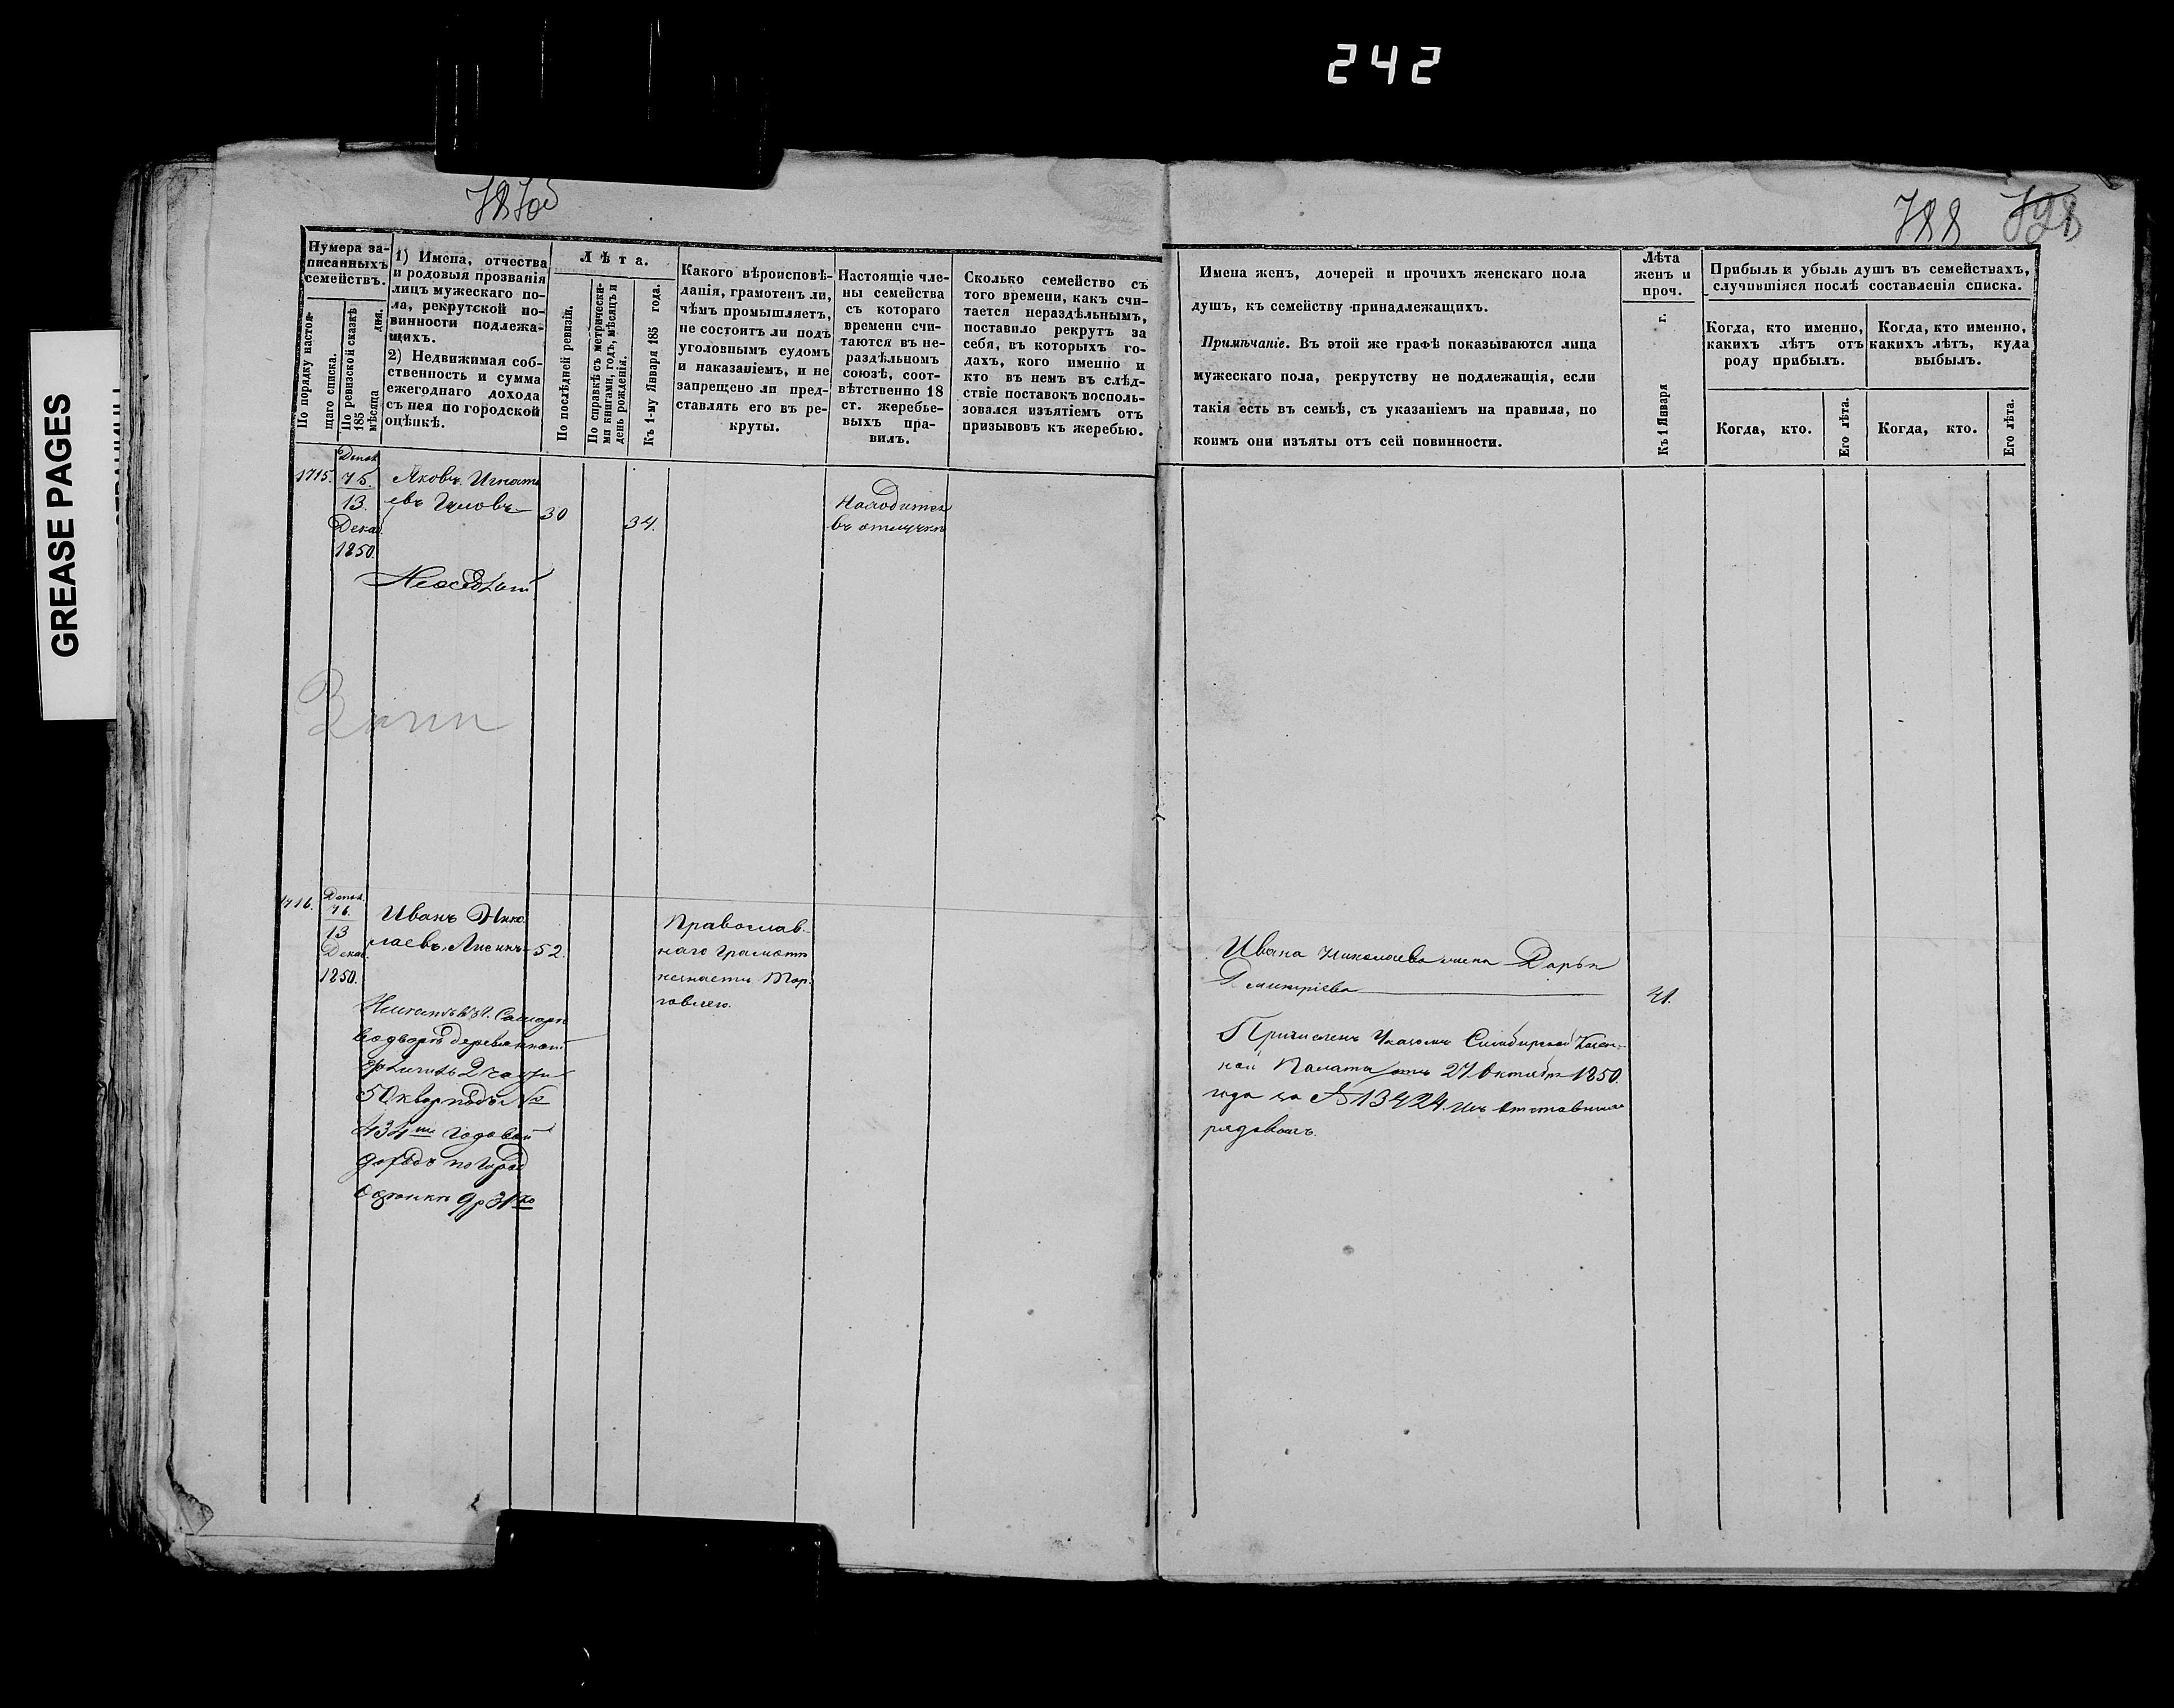 242
GREASE PAGES
787об
788
Нумера за-
писанныхъ
семействъ.
По порядку настоя-
щаго списка.
По ревизской сказкѣ
185
мѣсяца дня.
1) Имена, отчества
и родовыя прозванія
лицъ мужескаго по-
ла, рекрутской по-
винности подлежа-
щихъ.
2) Недвижимая соб-
ственность и сумма
ежегоднаго дохода
съ нея по городской
оцѣнкѣ.
Лѣта.
По послѣдней ревизіи.
По справкѣ съ метрически-
ми книгами, годъ, мѣсяцъ и
день рожденія.
Къ 1-му Января 185 года.
Какого вѣроисповѣ-
данія, грамотенъ ли,
чѣмъ промышляетъ,
не состоитъ ли подъ
уголовнымъ судомъ
и наказаніемъ, и не
запрещено ли пред-
ставлять его въ ре-
круты.
Настоящіе чле-
ны семейства
съ котораго
времени счи-
таются въ не-
раздѣльномъ
союзѣ, соот-
вѣтственно 18
ст. жеребье-
выхъ пра-
вилъ.
Сколько семейство съ
того времени, какъ счи-
тается нераздѣльнымъ,
поставило рекрутъ за
себя, въ которыхъ го-
дахъ, кого именно и
кто въ немъ въ слѣд-
ствіе поставокъ восполь-
зовался изъятіемъ отъ
призывовъ къ жеребью.
Имена женъ, дочерей и прочихъ женскаго пола
душъ, къ семейству принадлежащихъ.
Примѣчаніе. Въ этой же графѣ показываются лица
мужескаго пола, рекрутству не подлежащія, если
такія есть въ семьѣ, съ указаніемъ на правила, по
коимъ они изъяты отъ сей повинности.
Лѣта
женъ и
проч.
Къ 1 Января г.
Прибыль и убыль душъ въ семействахъ,
случившіяся послѣ составленія списка.
Когда, кто именно,
какихъ лѣтъ отъ
роду прибылъ.
Когда, кто именно,
какихъ лѣтъ, куда
выбылъ.
Когда, кто.
Его лѣта.
Когда, кто.
Его лѣта.
1715.
75.
13.
Декаб.
1850.
Яковъ Игнать
евъ
30
34.
Находится
въ отлучкѣ
1716.
76.
13
Декаб.
1850.
Иванъ Нико
лаевъ
52.
Православ-
наго Грамотѣ
Тор-
говлею.
50 квар
434 годовой
доходъ по Город
оцѣнкѣ 9 р 31 ко
Ивана Николаева жена Дарья
Дмитріева
41.
Причисленъ Указомъ Симбирской Казен-
ной Палаты отъ 27 Октября 1850.
года за № 13424. изъ отставныхъ
рядовыхъ.